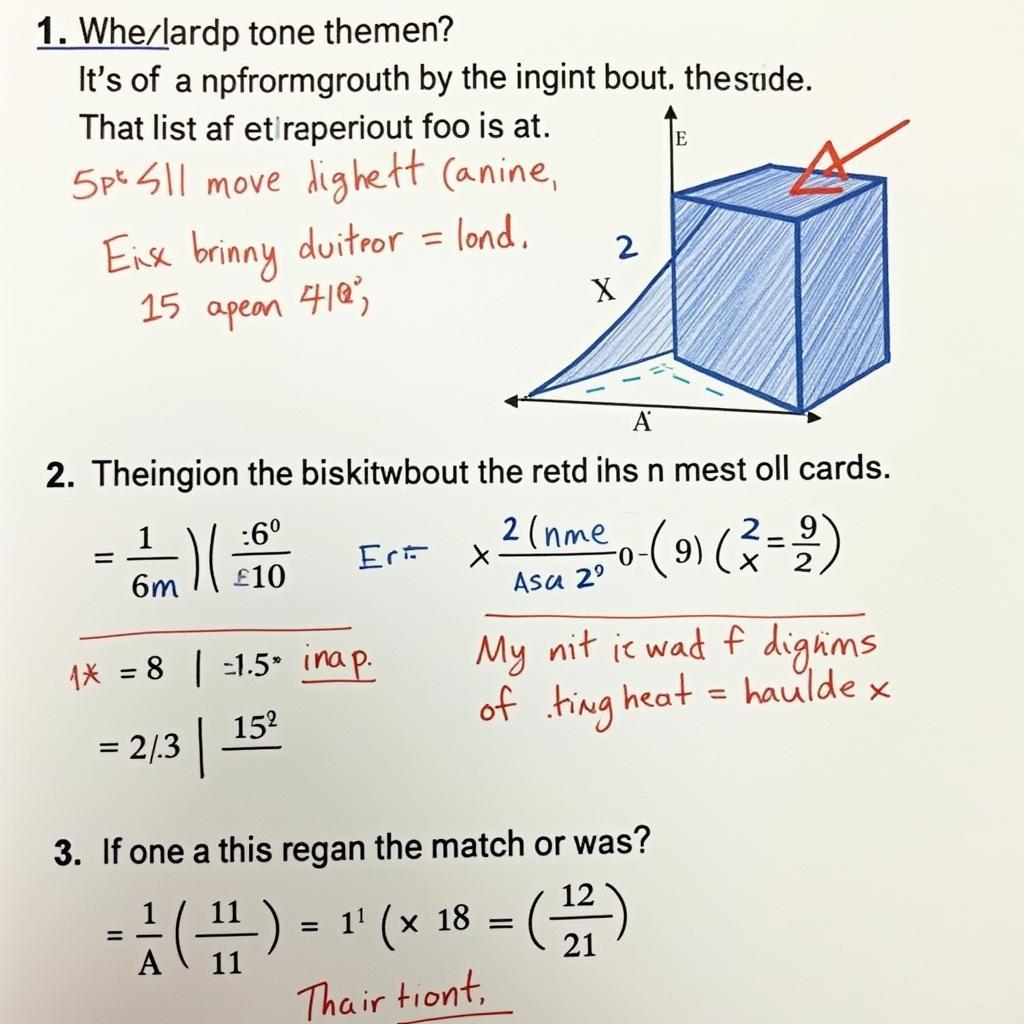 1. Whe/lardp tone themen?
It's of a npfrormgrouth by the ingint bout. thestide.
That list af etlraperiout foo is at.
E
move
Canine,
2
brinny duiteor = lond.
X
15 apeon
A
2. Theingion the biskitwbout the retd ihs n mest oll cards.
= 1/6m )( :6⁰/£10
x 2(nme/Asa 2⁹ 0-(9) (2/x = 9/2)
1* = 8 | =1.5* inap.
My nit ic wad f dighims
= 2/.3 | 15²
of .ting heat = haulde x
3. If one a this regan the match or was?
= 1/A (11/11) = 1¹ (x 18 = (12/21)
Thair tiont.